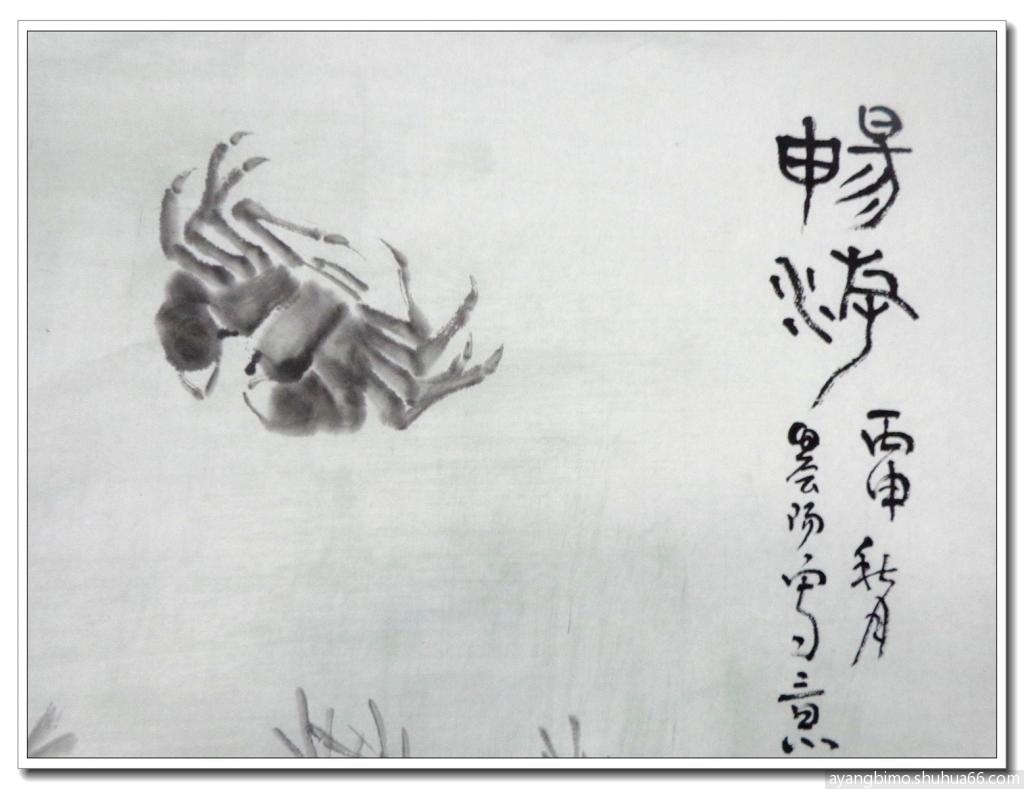 暢游
丙申秋月
昙陽寫意
ayangbimo.shuhua66.com